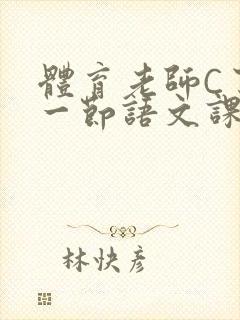 體育老師C
一節語文課
林快彥